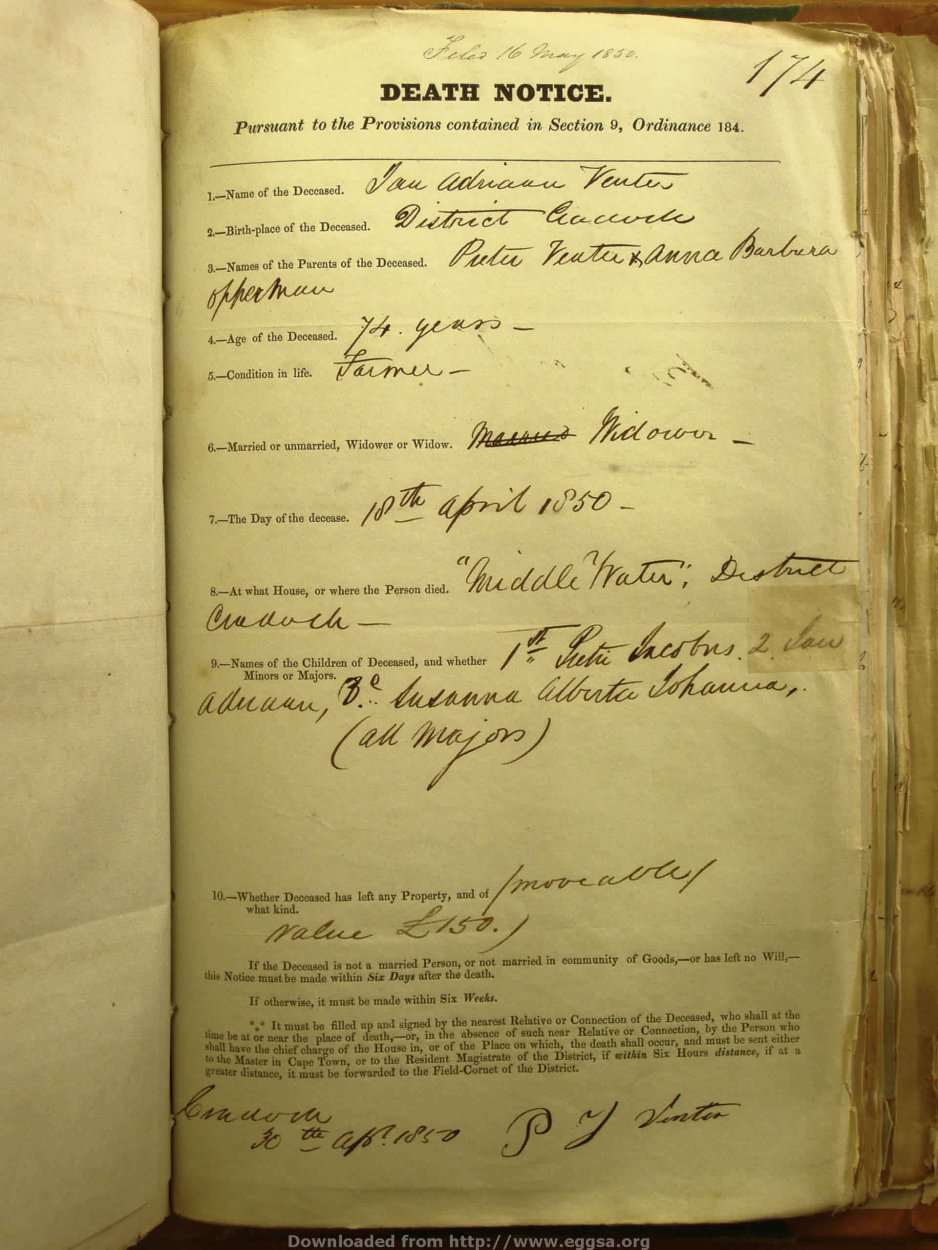 Filed 16 May 1850.
174
DEATH NOTICE.
Pursuant to the Provisions contained in Section 9, Ordinance 184.
1.—Name of the Deceased. Jan Adriaan Venter
2.—Birth-place of the Deceased. District Cradock
3.—Names of the Parents of the Deceased. Pieter Venter & Anna Barbara
Opperman
4.—Age of the Deceased. 74. years —
5.—Condition in life. Farmer —
6.—Married or unmarried, Widower or Widow. Married Widower —
7.—The Day of the decease. 18th April 1850 —
8.—At what House, or where the Person died. "Middle Water", District
Cradock —
9.—Names of the Children of Deceased, and whether 1st Pieter Jacobus. 2 Jan
Minors or Majors.
Adriaan, 3d. Susanna Alberta Johanna,.
(all Majors)
10.—Whether Deceased has left any Property, and of (moveable)
what kind.
value £150.)
If the Deceased is not a married Person, or not married in community of Goods,—or has left no Will,—
this Notice must be made within Six Days after the death.
If otherwise, it must be made within Six Weeks.
*** It must be filled up and signed by the nearest Relative or Connection of the Deceased, who shall at the
time be at or near the place of death,—or, in the absence of such near Relative or Connection, by the Person who
shall have the chief charge of the House in, or of the Place on which, the death shall occur, and must be sent either
to the Master in Cape Town, or to the Resident Magistrate of the District, if within Six Hours distance, if at a
greater distance, it must be forwarded to the Field-Cornet of the District.
Cradock
30th Apl. 1850 P J Venter
Downloaded from http://www.eggsa.org